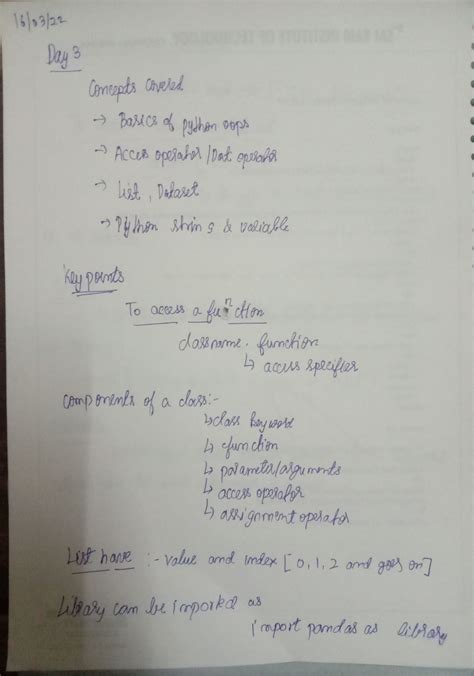 16/03/22
Day 3
Concepts covered
→ Basics of python oops
→ Acces operator/Dot operator
→ List, Dataset
→ Python string & variable
Key points
To access a function
classname. function
↳ access specifier
components of a class:-
↳ class keyword
↳ function
↳ parameter/arguments
↳ access operator
↳ assignment operator
List have :- value and index [0, 1, 2 and goes on]
Library can be imported as
import pandas as library